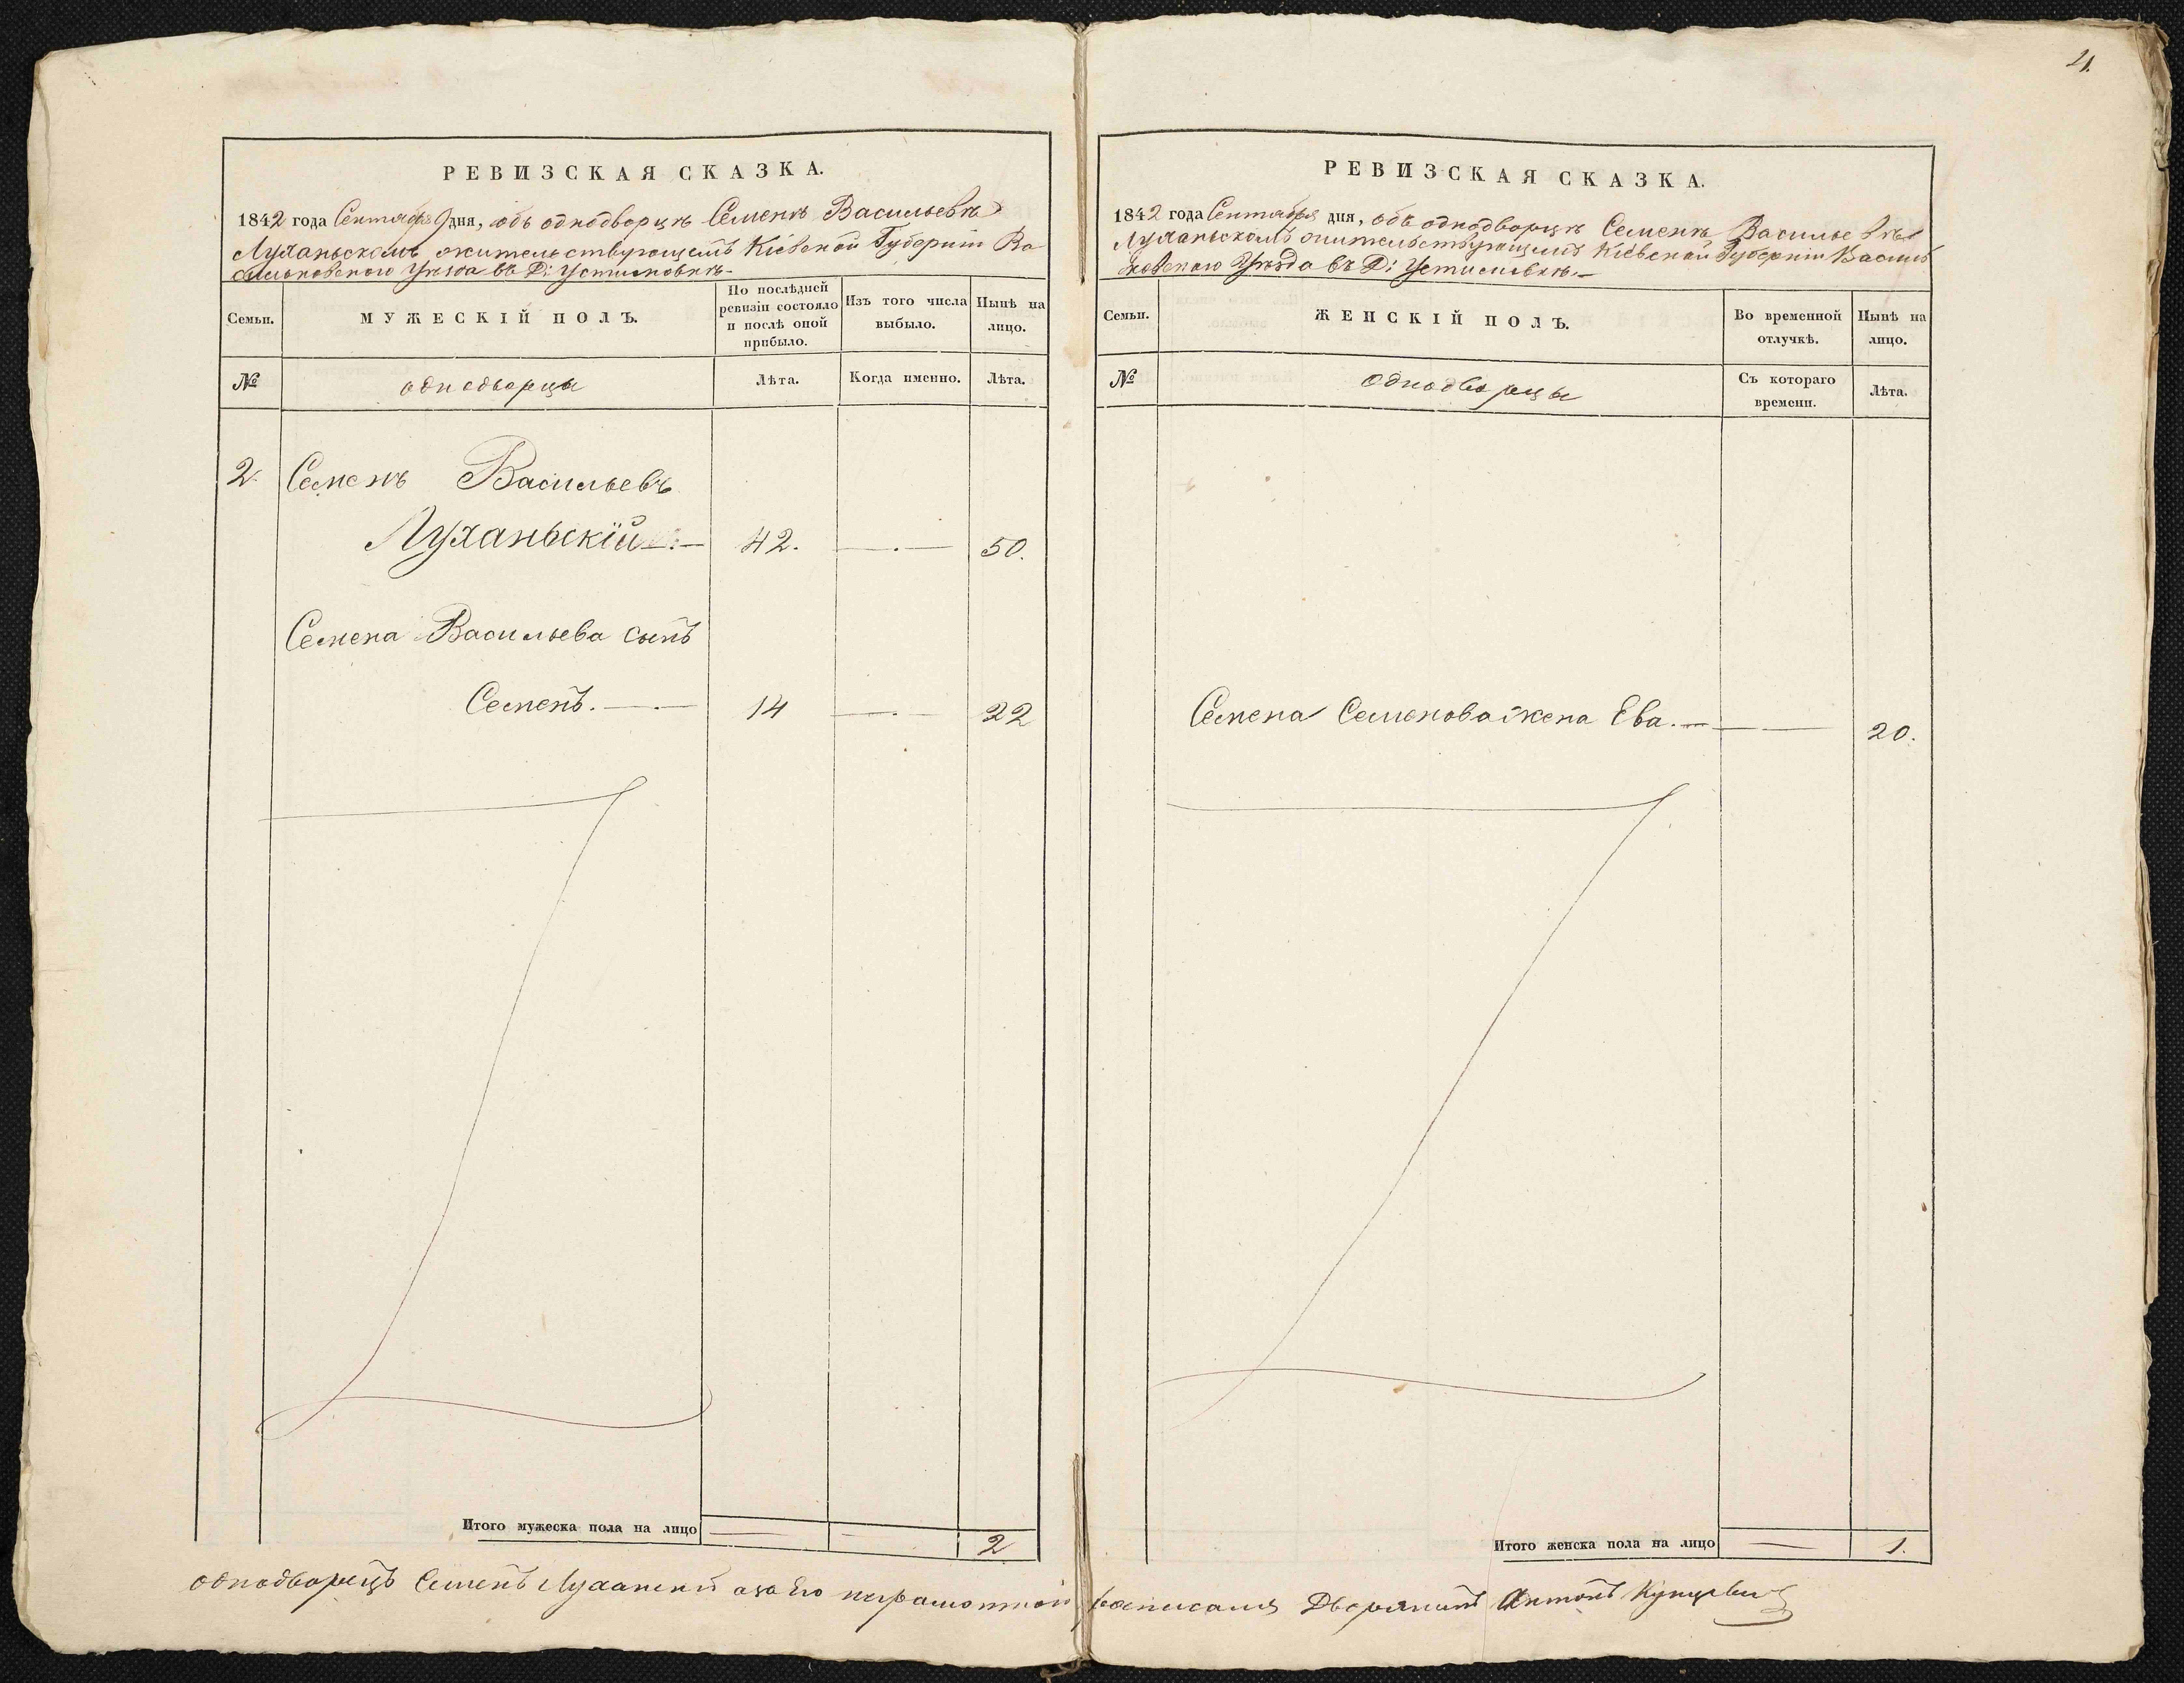 21.
РЕВИЗСКАЯ СКАЗКА.
1842 года Сентября 9 дня, объ однодворцѣ Семенѣ Васильевѣ
Луханьскомъ жительствующемъ Кіевской Губерніи Ва
сильковского Уѣзда въ Д: Устимовкѣ.—
Семьи.
МУЖЕСКІЙ ПОЛЪ.
По послѣдней ревизіи состояло и послѣ оной прибыло.
Изъ того числа выбыло.
Нынѣ на лицо.
№
однодворцы
Лѣта.
Когда именно.
Лѣта.
2. Семенъ Васильевъ
Луханьскій —.— 42. —.— 50.
Семена Васильева сынъ
Семенъ. —.— 14 —.— 22
Итого мужеска пола на лицо — — 2
РЕВИЗСКАЯ СКАЗКА.
1842 года Сентября дня, объ однодворцѣ Семенѣ Васильевѣ
Луханьскомъ жительствующемъ Кіевской Губерніи Василь
ковского Уѣзда въ Д: Устимовкѣ.—
Семьи.
ЖЕНСКІЙ ПОЛЪ.
Во временной отлучкѣ.
Нынѣ на лицо.
№
Однодворцы
Съ котораго времени.
Лѣта.
Семена Семенова жена Ева. — — 20.
Итого женска пола на лицо — 1.
однодворецъ Семенъ Луханский а за Его неграмотной росписался Дворянинъ Антонъ